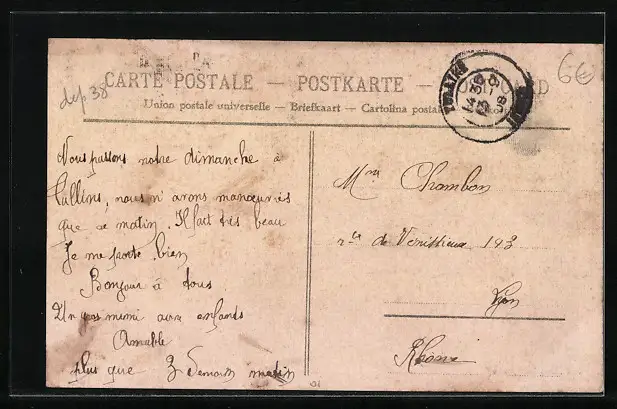 dep 38
6€
CARTE POSTALE — POSTKARTE —
Union postale universelle — Briefkaart — Cartolina postale
Nous passons notre dimanche à
Tullins, nous n'avons manœuvrés
que ce matin. Il fait très beau
Je me porte bien
Bonjour à tous
Un gros mimi aux enfants
Amable
plus que 3 Demain matin
Mme Chambon
rte de Venissieux 193
Lyon
Rhône